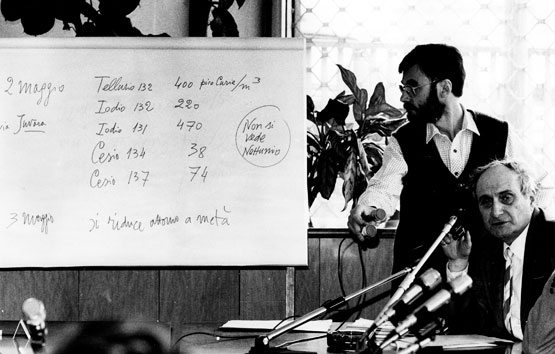 2 maggio Tellurio 132 400 picoCurie/m³
Iodio 132 220
via Juvara Iodio 131 470
Cesio 134 38
Cesio 137 74
Non si
vede
Nettunio
3 maggio si riduce attorno a metà